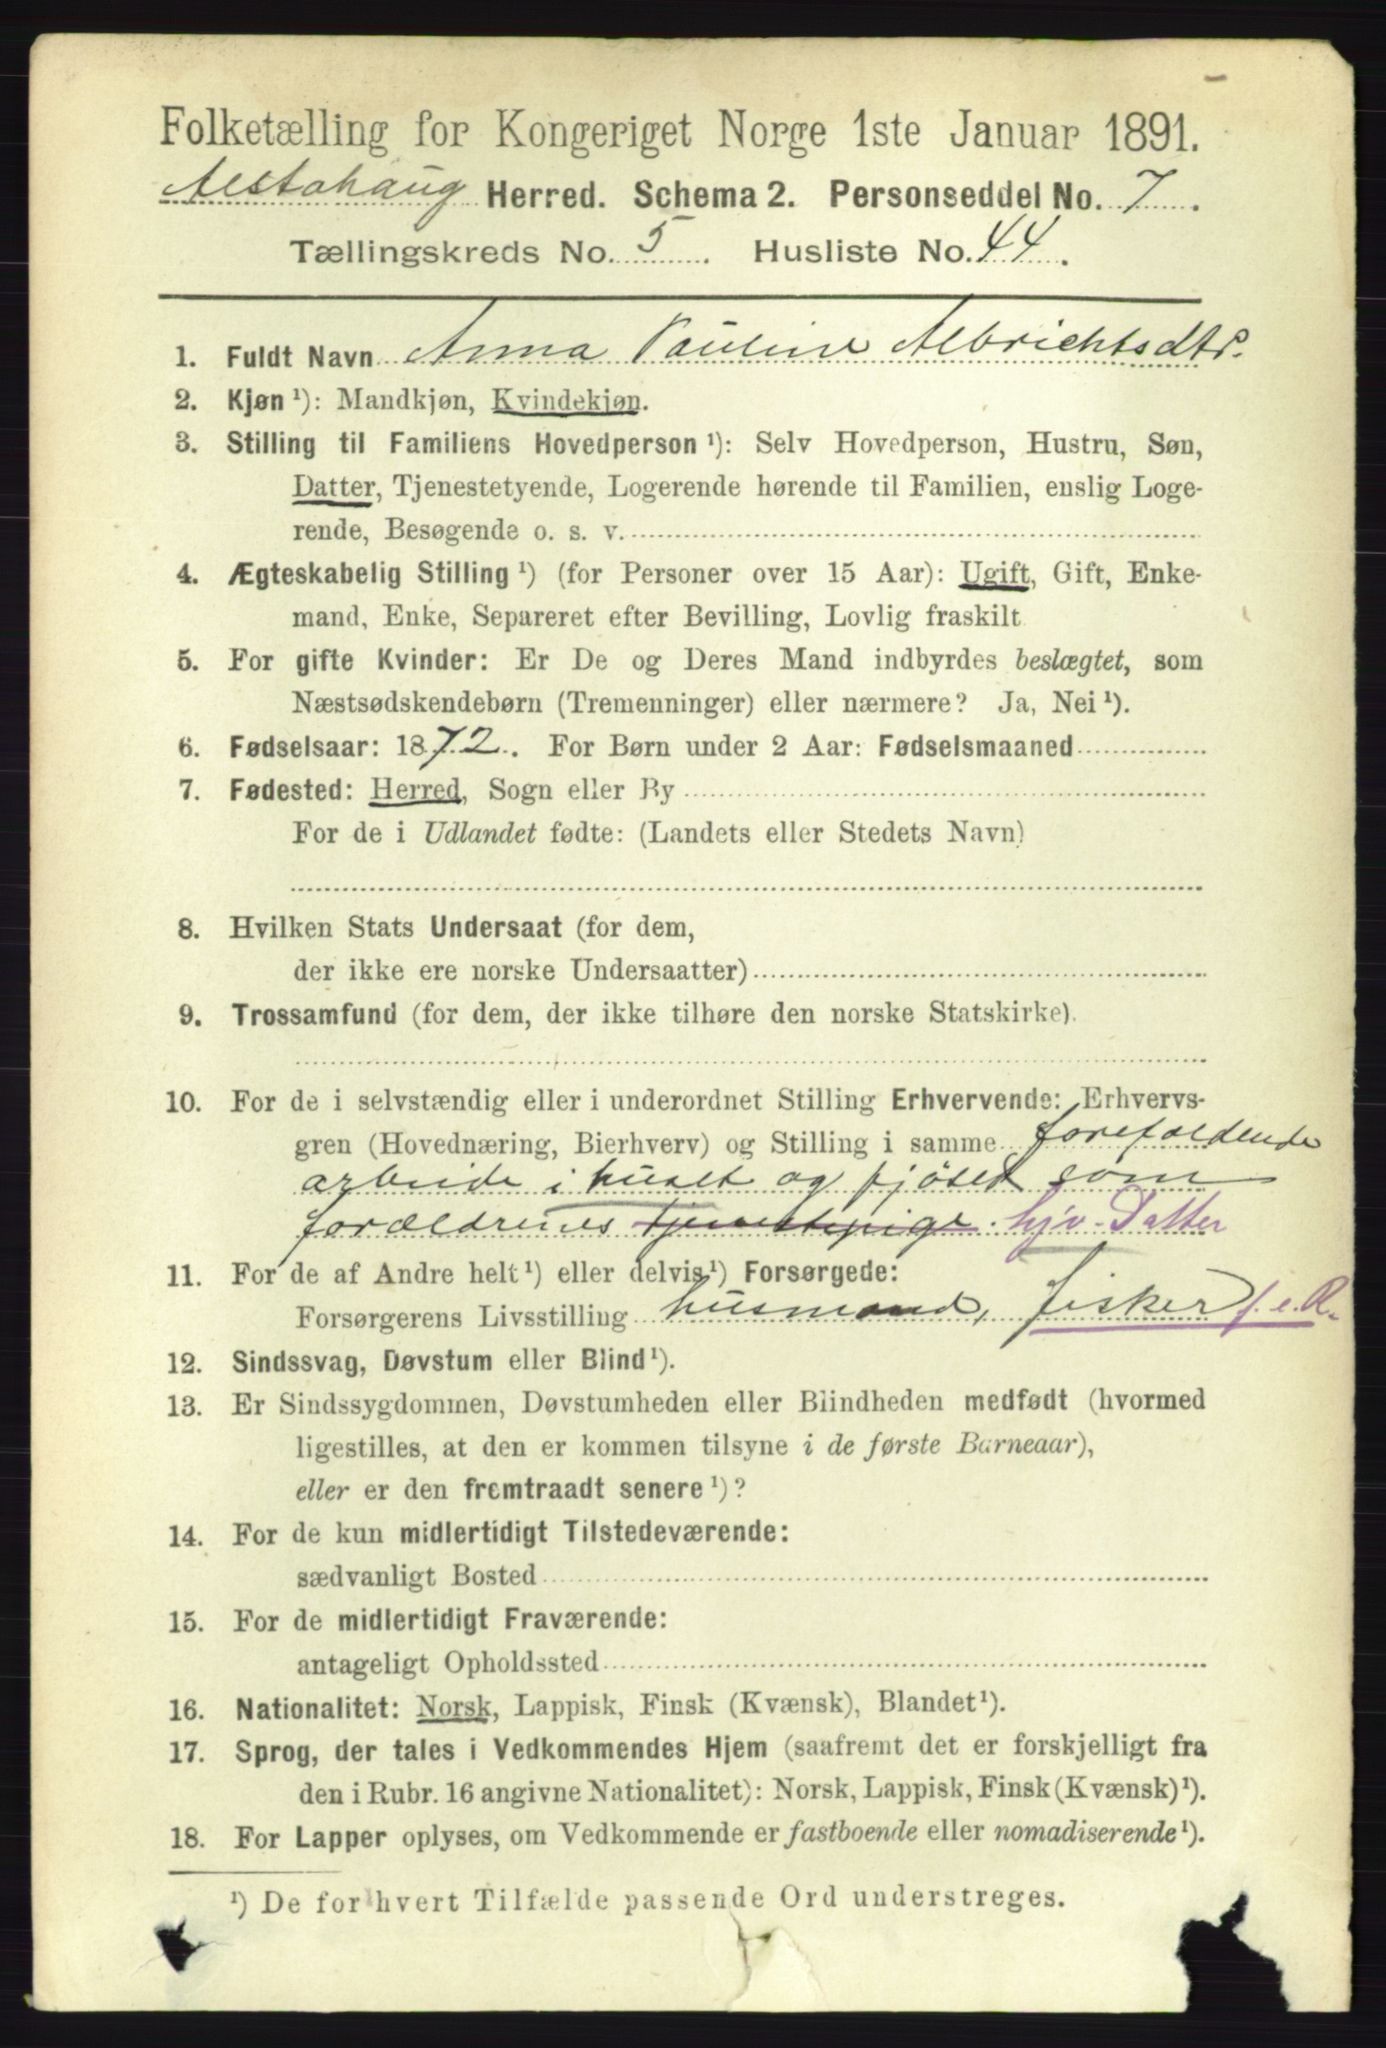 Folketælling for Kongeriget Norge 1ste Januar 1891.
Alstahaug Herred. Schema 2. Personseddel No. 7.
Tællingskreds No. 5. Husliste No. 44.
1. Fuldt Navn Anna Pauline Albrichtsdtr.
2. Kjøn ¹): Mandkjøn, Kvindekjøn.
3. Stilling til Familiens Hovedperson ¹): Selv Hovedperson, Hustru, Søn,
Datter, Tjenestetyende, Logerende hørende til Familien, enslig Loge-
rende, Besøgende o. s. v.
4. Ægteskabelig Stilling ¹) (for Personer over 15 Aar): Ugift, Gift, Enke-
mand, Enke, Separeret efter Bevilling, Lovlig fraskilt
5. For gifte Kvinder: Er De og Deres Mand indbyrdes beslægtet, som
Næstsødskendebørn (Tremenninger) eller nærmere? Ja, Nei ¹).
6. Fødselsaar: 1872. For Børn under 2 Aar: Fødselsmaaned
7. Fødested: Herred, Sogn eller By
For de i Udlandet fødte: (Landets eller Stedets Navn)
8. Hvilken Stats Undersaat (for dem,
der ikke ere norske Undersaatter)
9. Trossamfund (for dem, der ikke tilhøre den norske Statskirke).
10. For de i selvstændig eller i underordnet Stilling Erhvervende: Erhvervs-
gren (Hovednæring, Bierhverv) og Stilling i samme forefaldende
arbeide i huset og fjöset som
forældrenes tjenestepige. hjv. Datter
11. For de af Andre helt ¹) eller delvis ¹) Forsørgede:
Forsørgerens Livsstilling husmand, fisker f. e. R.
12. Sindssvag, Døvstum eller Blind ¹).
13. Er Sindssygdommen, Døvstumheden eller Blindheden medfødt (hvormed
ligestilles, at den er kommen tilsyne i de første Barneaar),
eller er den fremtraadt senere ¹)?
14. For de kun midlertidigt Tilstedeværende:
sædvanligt Bosted
15. For de midlertidigt Fraværende:
antageligt Opholdssted
16. Nationalitet: Norsk, Lappisk, Finsk (Kvænsk), Blandet ¹).
17. Sprog, der tales i Vedkommendes Hjem (saafremt det er forskjelligt fra
den i Rubr. 16 angivne Nationalitet): Norsk, Lappisk, Finsk (Kvænsk) ¹).
18. For Lapper oplyses, om Vedkommende er fastboende eller nomadiserende ¹).
¹) De for hvert Tilfælde passende Ord understreges.